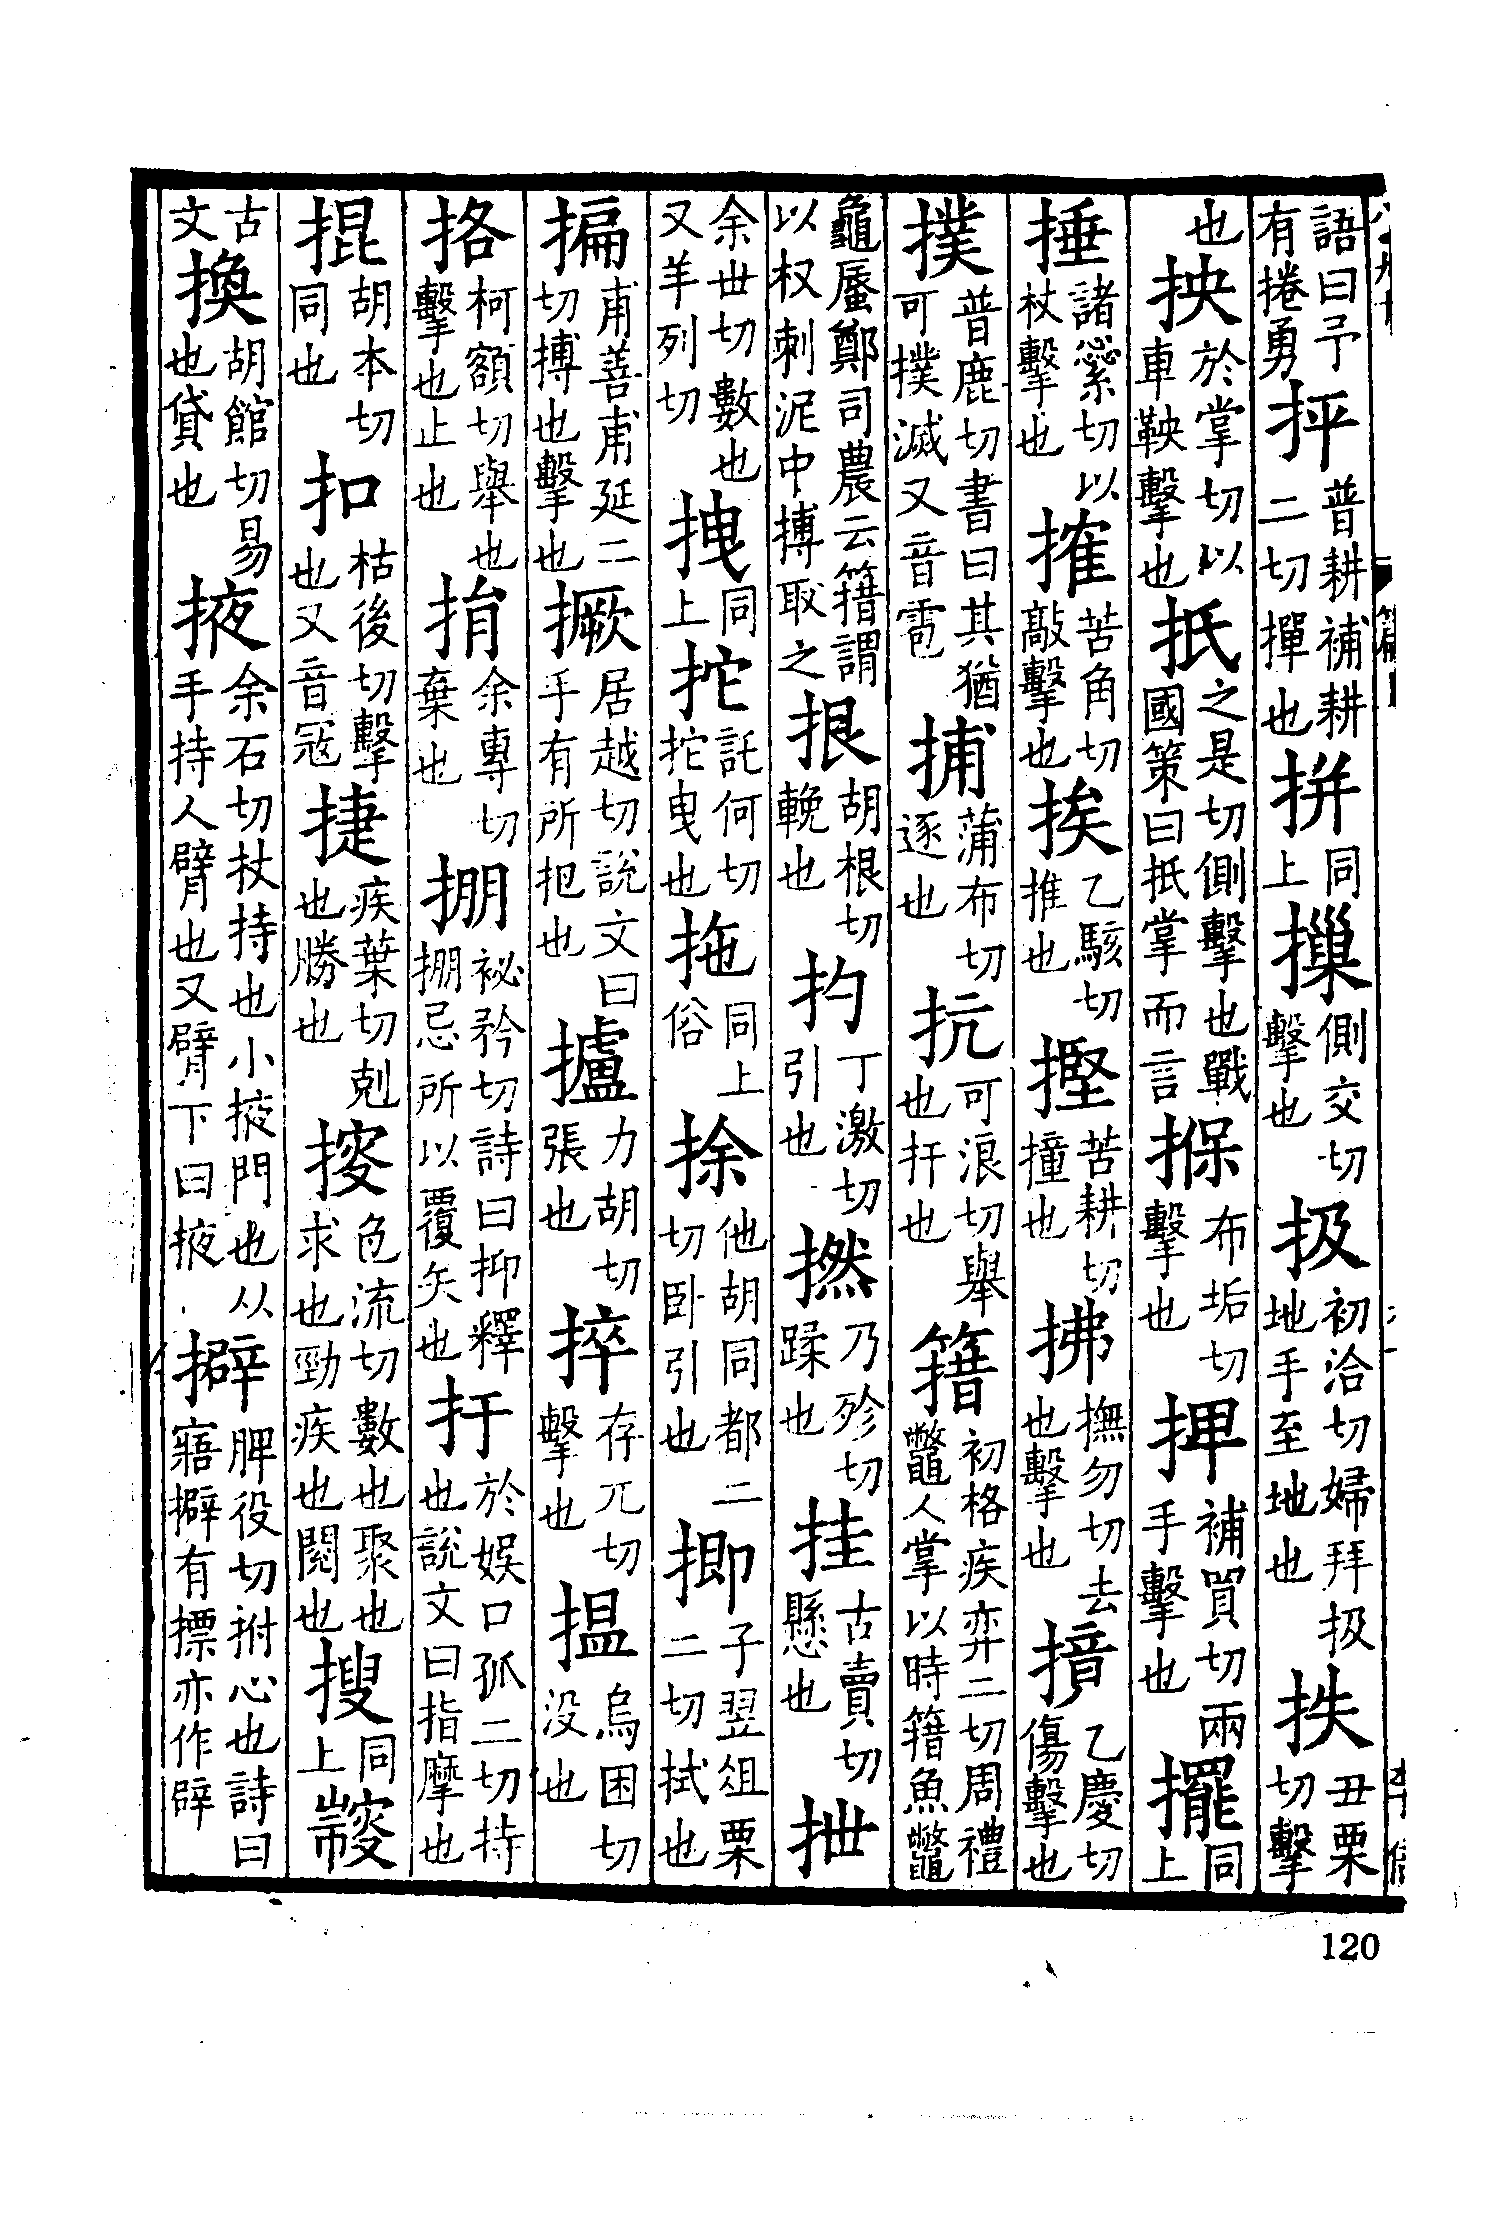 語曰予有捲勇抨普耕補耕二切撣也拼同上摷側交切擊也扱初洽切婦拜扱地手至地也抶丑栗切擊
也抰於掌切以車鞅擊也抵之是切側擊也戰國策曰抵掌而言㨐布垢切擊也押補買切兩手擊也擺同上
捶諸縈切以杖擊也搉苦角切敲擊也挨乙駭切推也摼苦耕切撞也拂撫勿切去也擊也㨕乙慶切傷擊也
撲普鹿切書曰其猶可撲滅又音雹捕蒲布切逐也抗可浪切舉也扞也籍初格疾弈二切周禮鼈人掌以時籍魚鼈
龜蜃鄭司農云籍謂以杈刺泥中搏取之拫胡根切輓也扚丁激切引也撚乃殄切蹂也挂古賣切懸也抴
余世切數也又羊列切拽同上拕託何切拕曳也拖同上俗捈他胡同都二切卧引也揤子翌俎栗二切拭也
揙甫善甫延二切搏也擊也撅居越切說文曰手有所把也攎力胡切張也捽存兀切擊也揾烏困切没也
挌柯額切舉也擊也止也捐余專切棄也掤祕矜切詩曰抑釋掤忌所以覆矢也扜於娱口孤二切持也說文曰指摩也
掍胡本切同也扣枯後切擊也又音冠捷疾葉切剋也勝也㨞色流切數也聚也求也勁疾也閱也搜同上
古文換胡館切易也貸也掖余石切杖持也小掖門也从手持人臂也又臂下曰掖擗脾役切拊心也詩曰寤擗有摽亦作辟
120